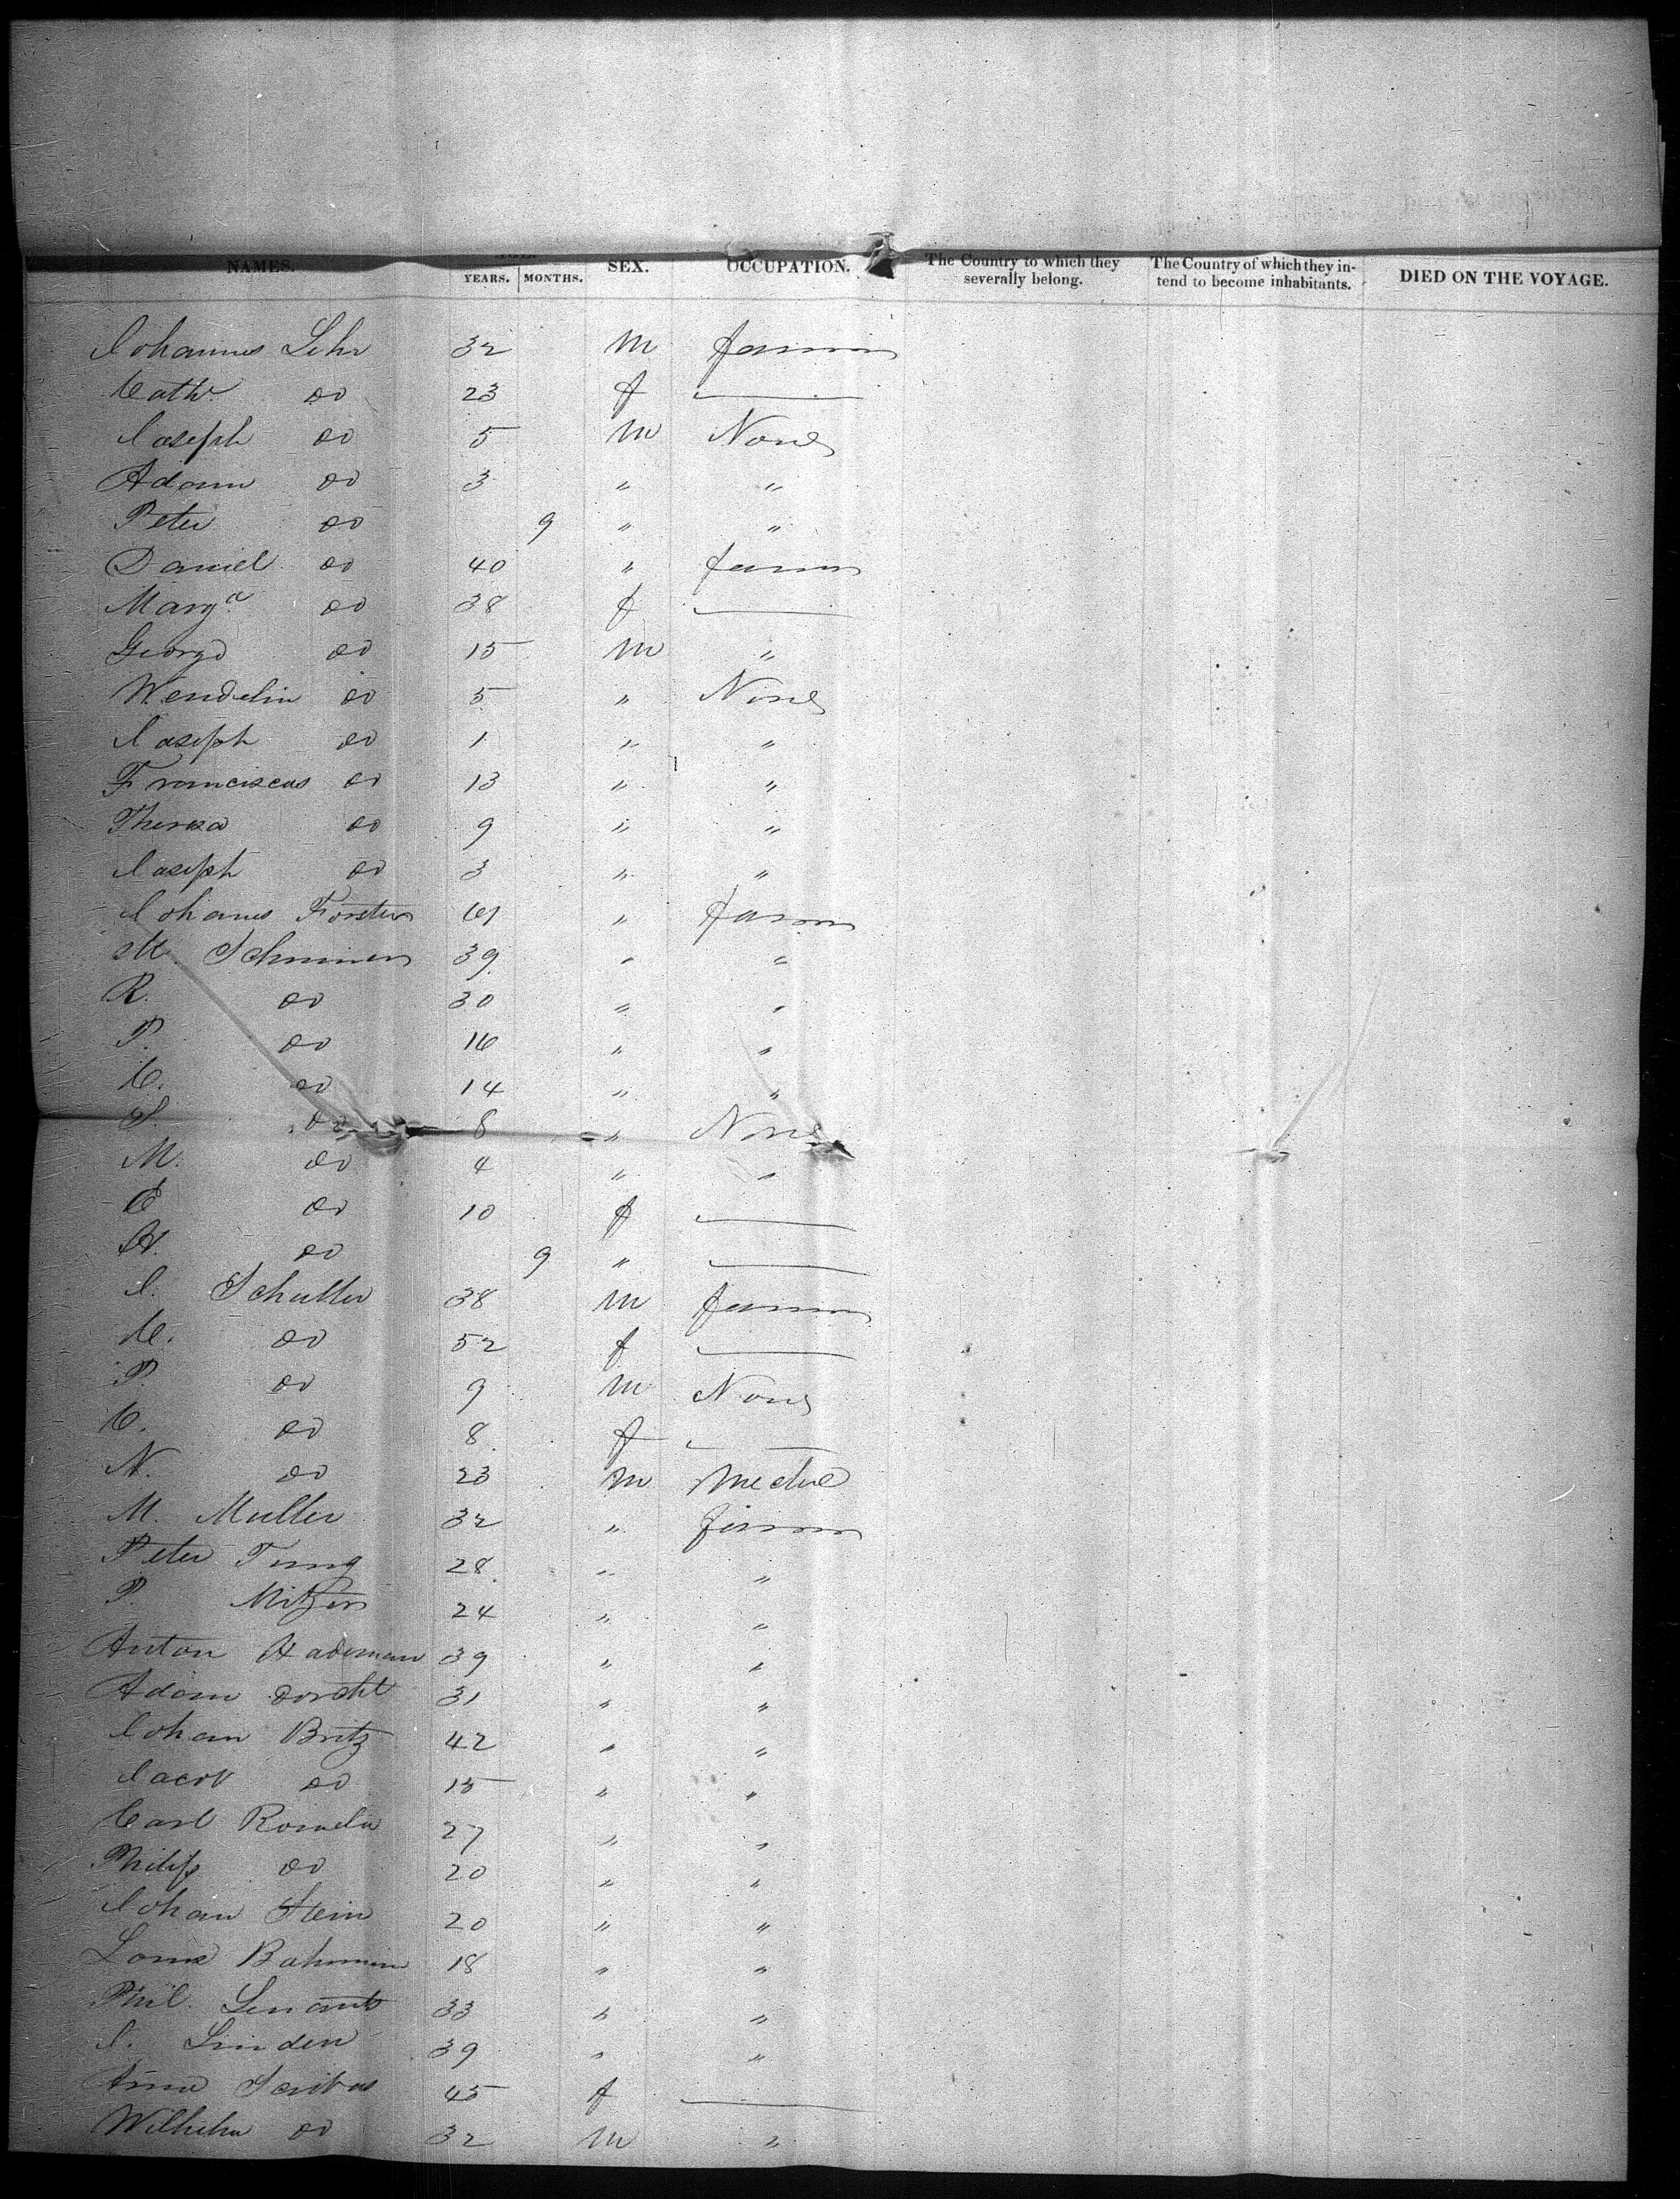 NAMES. YEARS. MONTHS. SEX. OCCUPATION. The Country to which they severally belong. The Country of which they intend to become inhabitants. DIED ON THE VOYAGE.
Johannes Lehr 32 m farmer
Cath. do 23 f —
Joseph do 5 m None
Adam do 3 " "
Peter do 9 " "
Daniel do 40 " farmer
Marga do 38 f —
George do 15 m "
Wendelin do 5 " None
Joseph do 1 " "
Franciscus do 13 " "
Theresa do 9 " "
Joseph do 3 " "
Johannes Forster 61 " farmer
M. 39 " "
R. do 30 " "
P. do 16 " "
C. do 14 " "
S. do 8 " None
M. do 4 " "
E do 10 f —
do 9 " —
J. Schuller 38 m farmer
C. do 52 f —
P. do 9 m None
C. do 8 f —
N. do 23 m
M. Muller 32 " farmer
Peter 28 " "
P. 24 " "
Anton 39 " "
Adam 31 " "
Johan Britz 42 " "
Jacob do 15 " "
Carl 27 " "
Philip do 20 " "
Johan Stein 20 " "
18 " "
Phil. 33 " "
J. Linden 39 " "
Anna 45 f —
Wilhelm do 32 m "